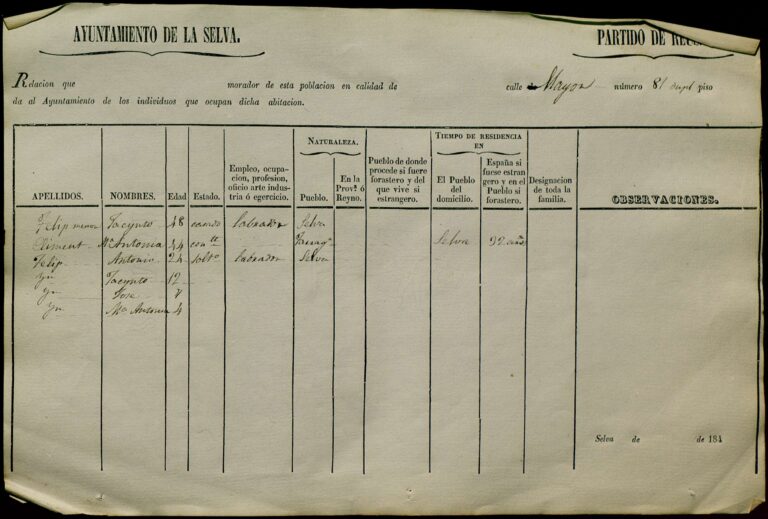 AYUNTAMIENTO DE LA SELVA.
PARTIDO DE
Relacion que morador de esta poblacion en calidad de calle Mayor número 81 dupl piso
da al Ayuntamiento de los individuos que ocupan dicha abitacion.
APELLIDOS. NOMBRES. Edad Estado. Empleo, ocupacion, profesion, oficio arte industria ó egercicio. NATURALEZA. Pueblo. En la Prov.ª ó Reyno. Pueblo de donde procede si fuere forastero y del que vive si estrangero. TIEMPO DE RESIDENCIA EN El Pueblo del domicilio. España si fuese estrangero y en el Pueblo si forastero. Designacion de toda la familia. OBSERVACIONES.
Felip menor Jacynto 48 casado labrador Selva
Climent Mª Antonia 44 con.te Tarrag.ª Selva 32 años
Felip Antonio 24 solt.o labrador Selva
Yn Jacynto 12
Yn Jose 8
Yn Mª Antonia 4
Selva de de 184